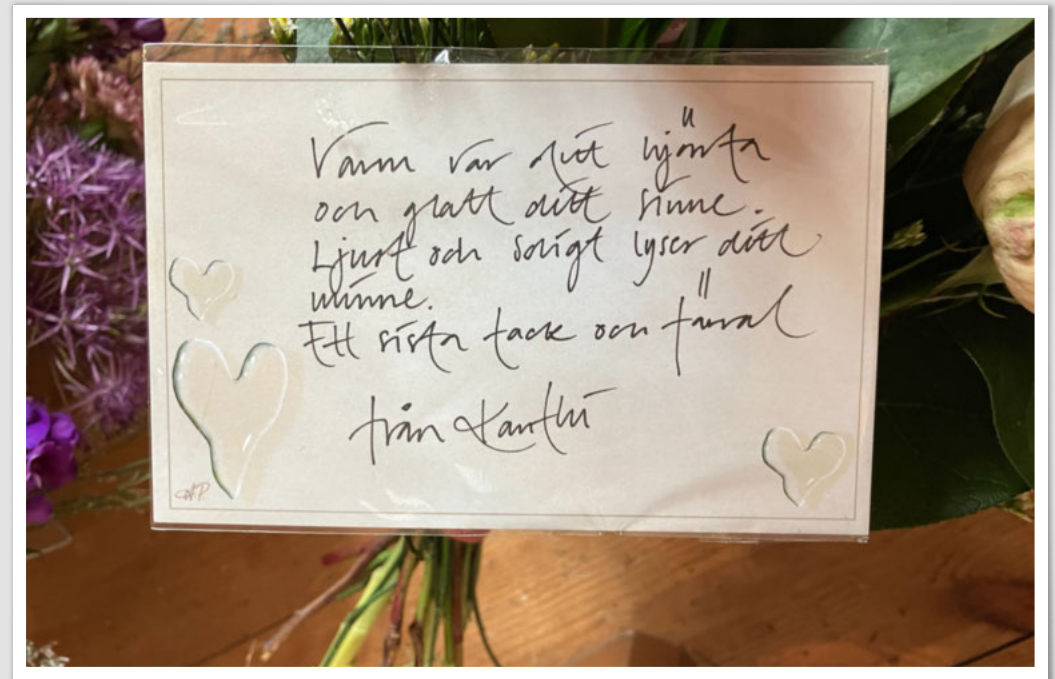 Varm var ditt hjärta
och glatt ditt sinne.
Ljust och soligt lyser ditt
minne.
Ett sista tack och farväl
från Xanthi
AP.